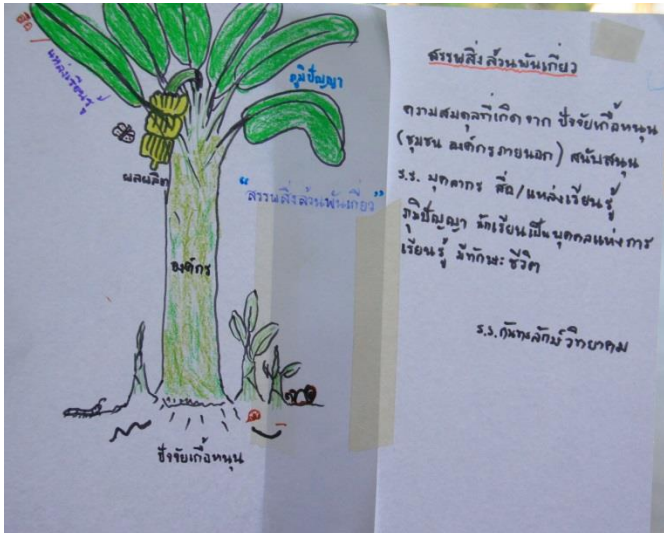 สื่อ
แหล่งเรียนรู้
ภูมิปัญญา
ผลผลิต
"สรรพสิ่งล้วนพันเกี่ยว"
องค์กร
ปัจจัยเกื้อหนุน
สรรพสิ่งล้วนพันเกี่ยว
ความสมดุลที่เกิดจาก ปัจจัยเกื้อหนุน
(ชุมชน องค์กรภายนอก) สนับสนุน
ร.ร. บุคลากร สื่อ/แหล่งเรียนรู้
ภูมิปัญญา นักเรียนเป็นบุคคลแห่งการ
เรียนรู้ มีทักษะชีวิต
ร.ร.กันทรลักษ์วิทยาคม